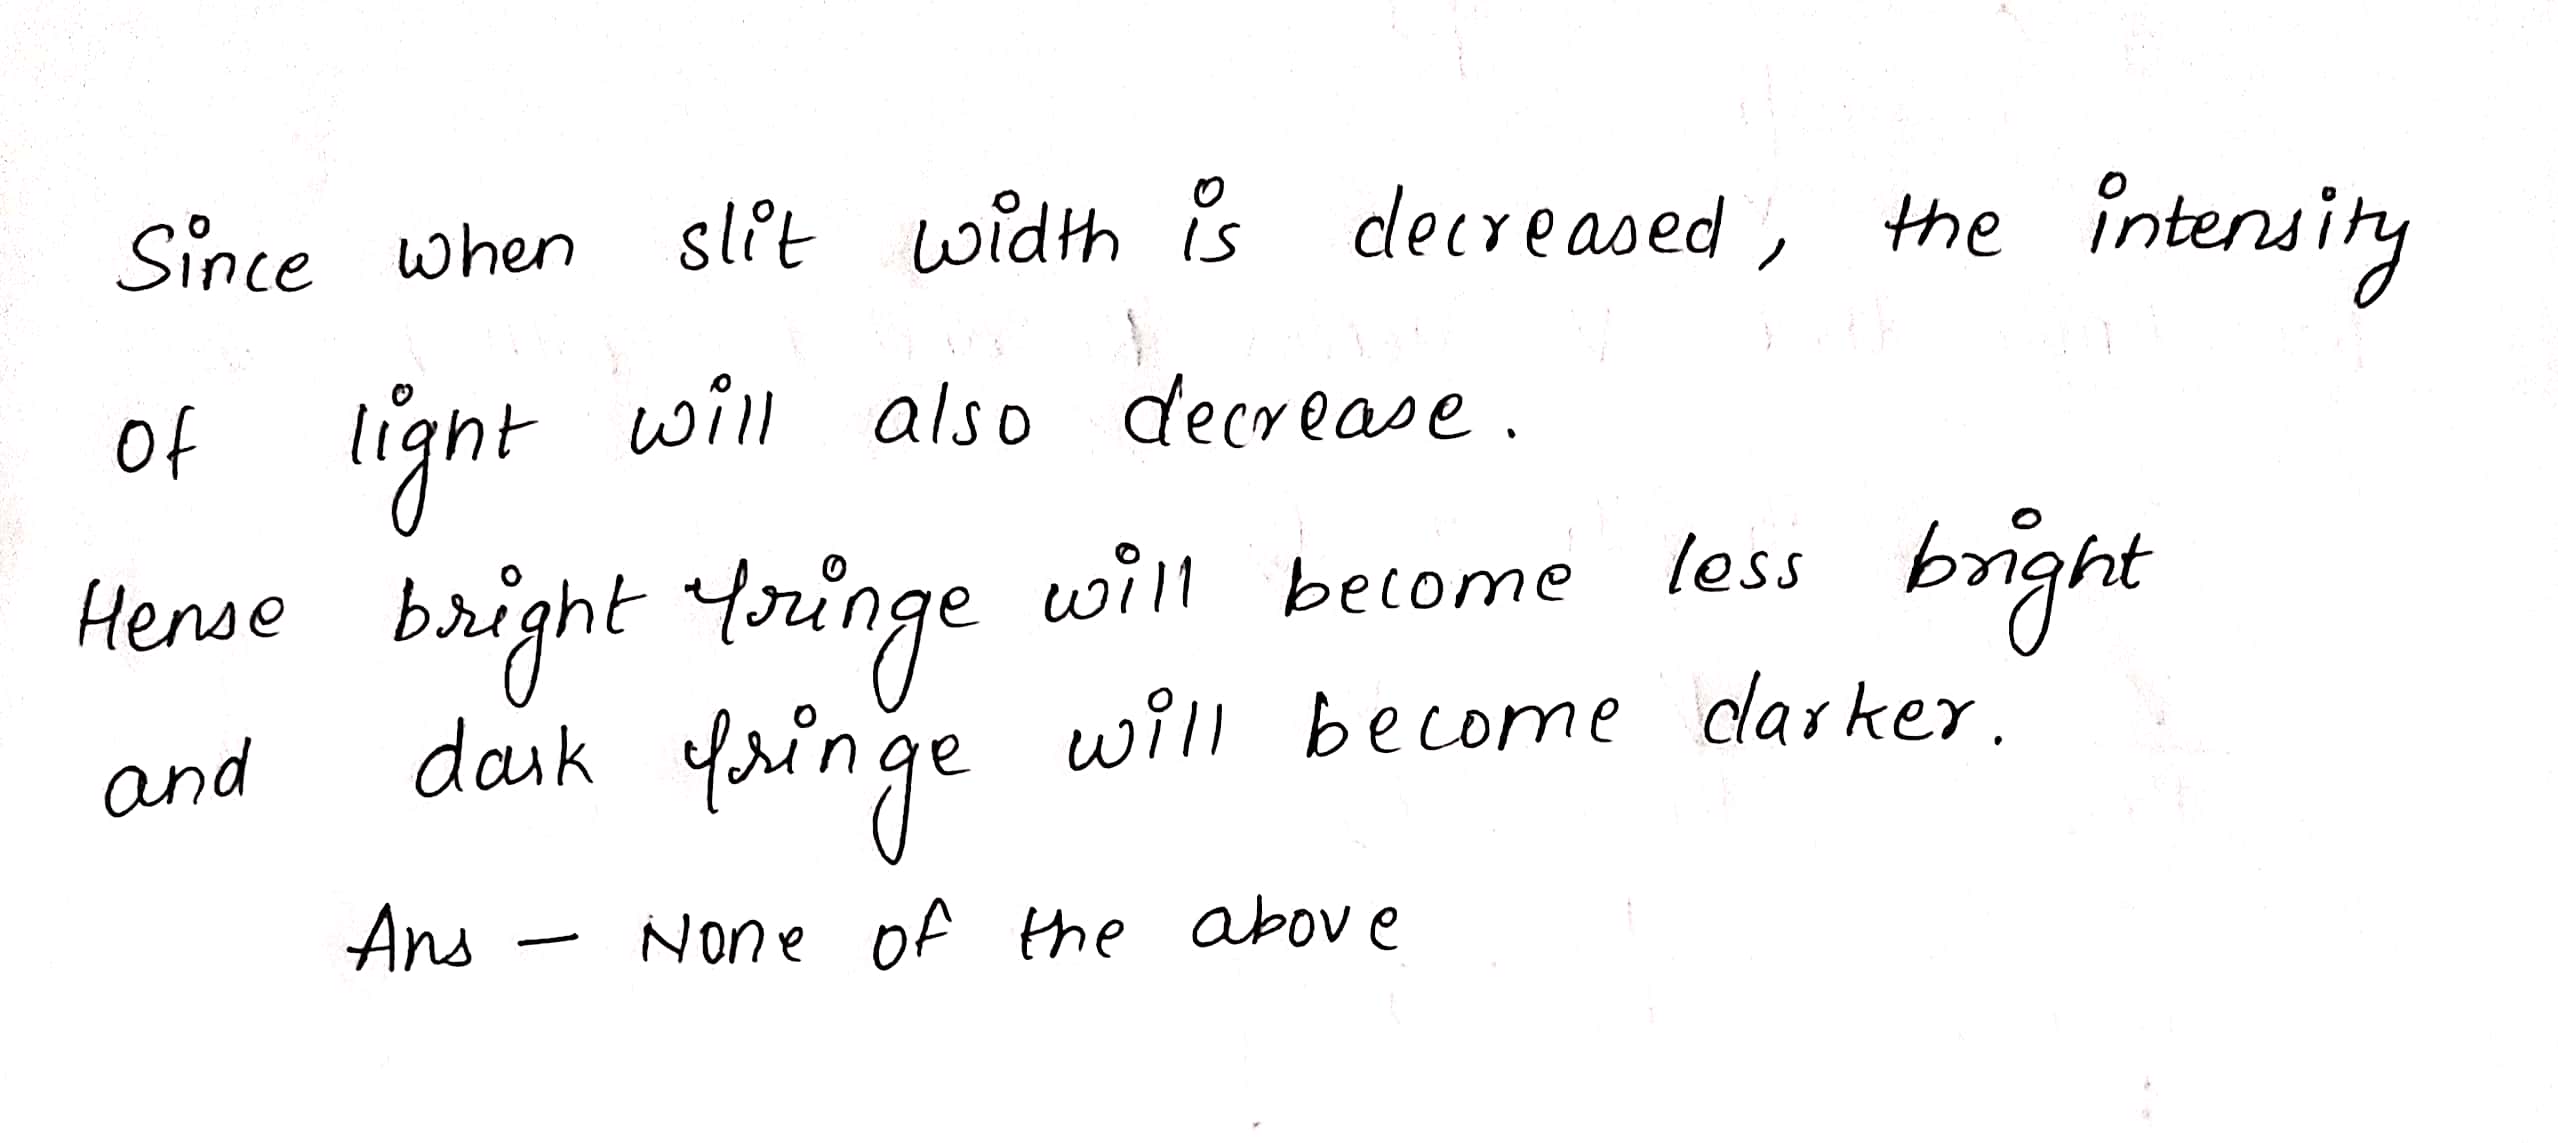 Since when slit width is decreased, the intensity
of light will also decrease.
Hense bright fringe will become less bright
and dark fringe will become darker.
Ans - None of the above